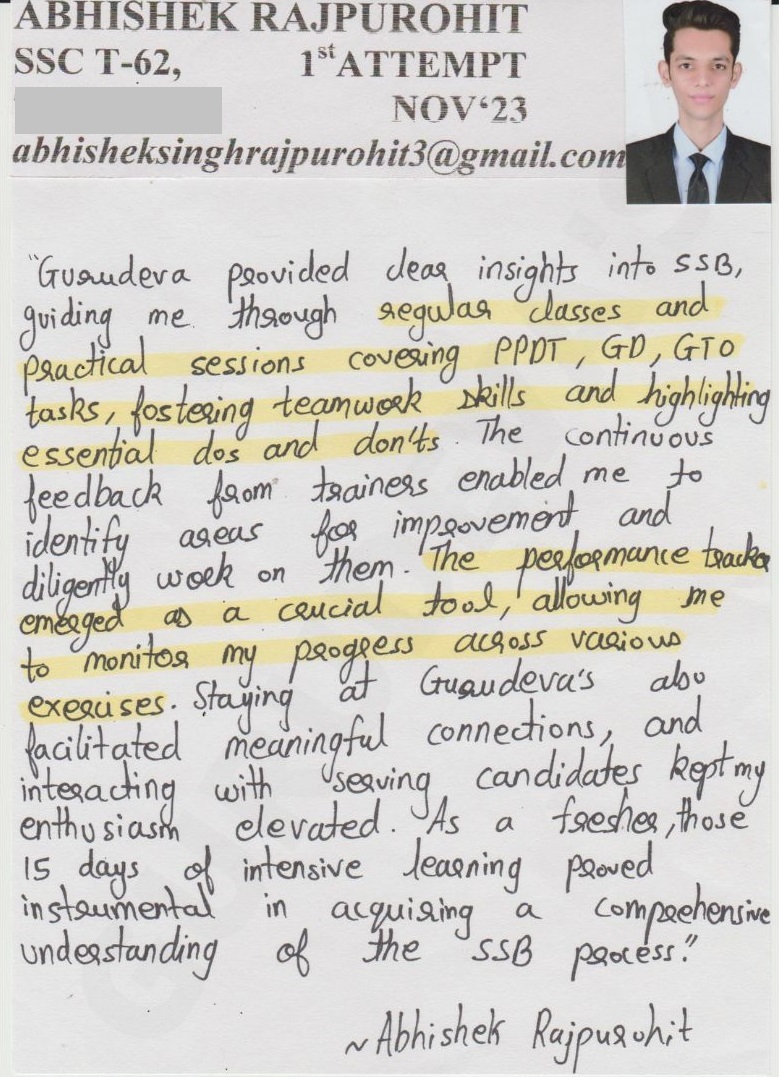 ABHISHEK RAJPUROHIT
SSC T-62, 1st ATTEMPT
NOV‘23
abhisheksinghrajpurohit3@gmail.com
"Gurudeva provided clear insights into SSB,
guiding me through regular classes and
practical sessions covering PPDT, GD, GTO
tasks, fostering teamwork skills and highlighting
essential dos and don'ts. The continuous
feedback from trainers enabled me to
identify areas for improvement and
diligently work on them. The performance tracker
emerged as a crucial tool, allowing me
to monitor my progress across various
exercises. Staying at Gurudeva's also
facilitated meaningful connections, and
interacting with serving candidates kept my
enthusiasm elevated. As a fresher, those
15 days of intensive learning proved
instrumental in acquiring a comprehensive
understanding of the SSB process."
~Abhishek Rajpurohit